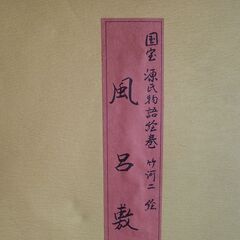 国宝 源氏物語絵巻 竹河二 絵
風呂敷